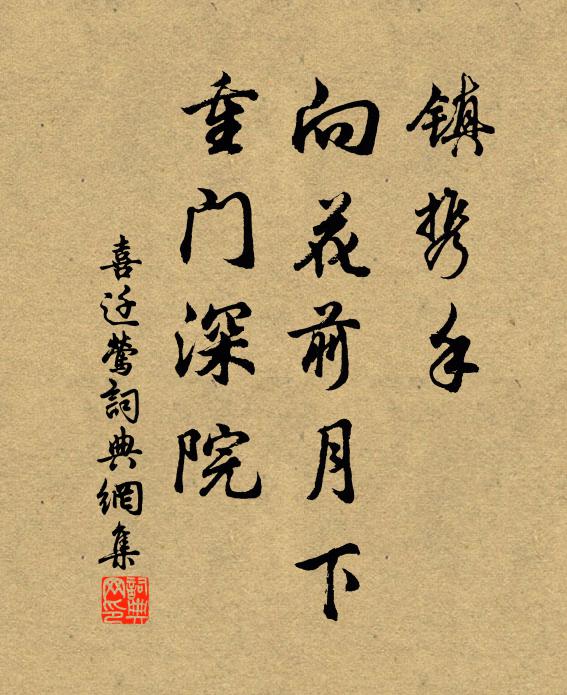 镇携手
向花前月下
重门深院
喜迁莺詞典網集
詞典
网印